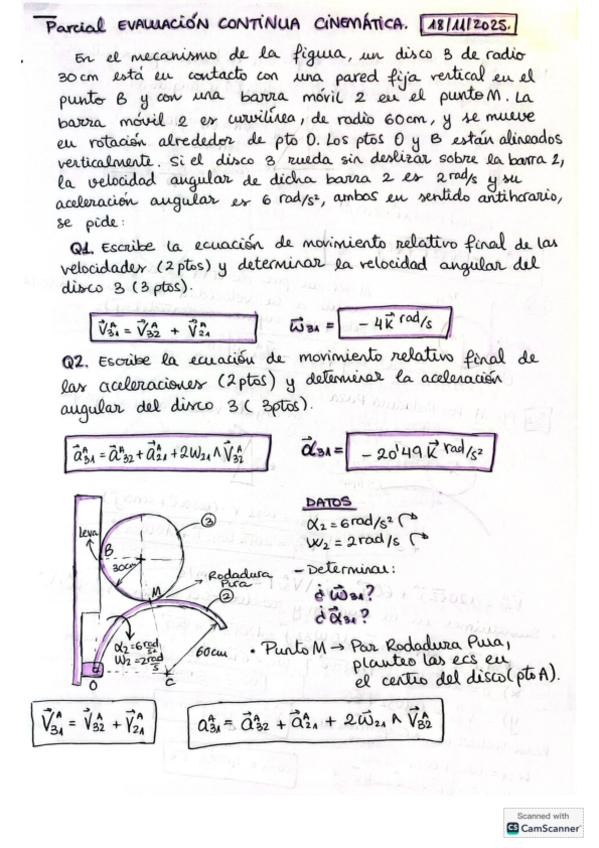 Parcial EVALUACIÓN CONTÍNUA CINEMÁTICA. 18/11/2025.
En el mecanismo de la figura, un disco 3 de radio
30 cm está en contacto con una pared fija vertical en el
punto B y con una barra móvil 2 en el punto M. La
barra móvil 2 es curvilínea, de radio 60cm, y se mueve
en rotación alrededor de pto O. Los ptos O y B están alineados
verticalmente. Si el disco 3 rueda sin deslizar sobre la barra 2,
la velocidad angular de dicha barra 2 es 2 rad/s y su
aceleración angular es 6 rad/s², ambos en sentido antihorario,
se pide:
Q1. Escribe la ecuación de movimiento relativo final de las
velocidades (2 ptos) y determinar la velocidad angular del
disco 3 (3 ptos).
V⃗31^A = V⃗32^A + V⃗21^A    ω⃗31 = -4k⃗ rad/s
Q2. Escribe la ecuación de movimiento relativo final de
las aceleraciones (2 ptos) y determinar la aceleración
angular del disco 3 (3 ptos).
a⃗31^A = a⃗32^A + a⃗21^A + 2ω21 ∧ V⃗32^A    α⃗31 = -20'49 k⃗ rad/s²
DATOS
α2 = 6 rad/s²
ω2 = 2 rad/s
- Determinar:
¿ω⃗31?
¿α⃗31?
• Punto M → Por Rodadura Pura,
planteo las ecs en
el centro del disco (pto A).
Leva
B
30cm
3
M
Rodadura
Pura
2
α2 = 6 rad/s²
ω2 = 2 rad/s
60cm
O
C
V⃗31^A = V⃗32^A + V⃗21^A    a31^A = a⃗32^A + a⃗21^A + 2ω⃗21 ∧ V⃗32^A
Scanned with
CS CamScanner